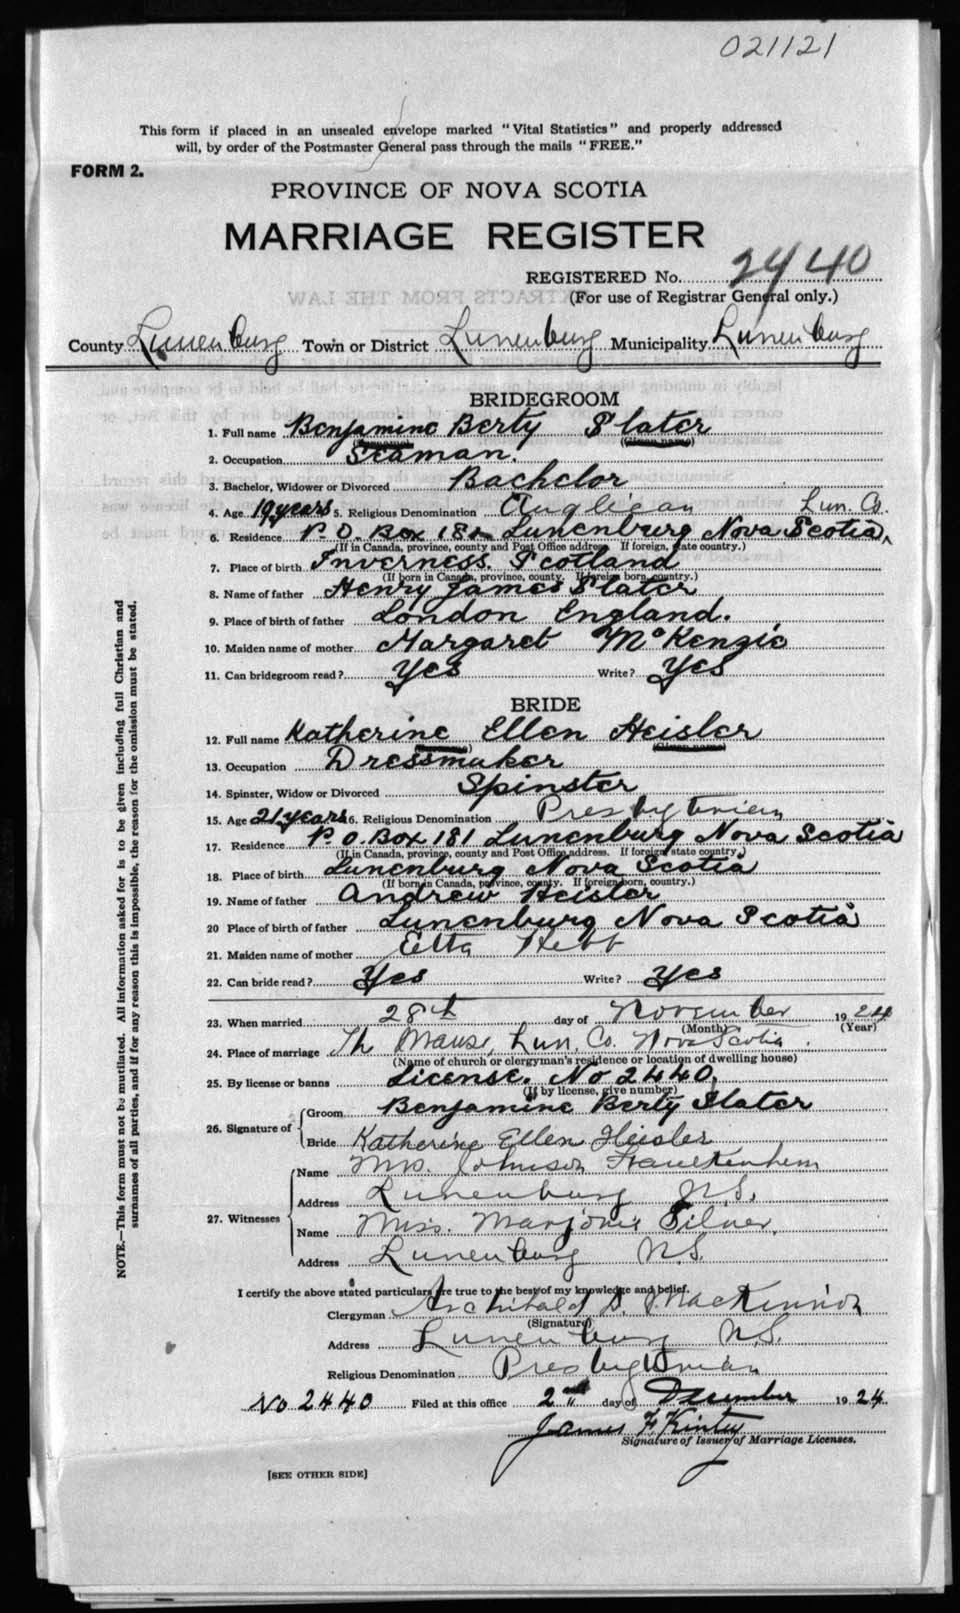 021121
This form if placed in an unsealed envelope marked "Vital Statistics" and properly addressed
will, by order of the Postmaster General pass through the mails "FREE."
FORM 2.
PROVINCE OF NOVA SCOTIA
MARRIAGE REGISTER
REGISTERED No. 2440
(For use of Registrar General only.)
County Lunenburg Town or District Lunenburg Municipality Lunenburg
BRIDEGROOM
1. Full name Benjamine Berty Slater
(Given name)
2. Occupation Seaman.
3. Bachelor, Widower or Divorced Bachelor
4. Age 19 years 5. Religious Denomination Anglican Lun. Co.
6. Residence P. O. Box 182 Lunenburg Nova Scotia,
(If in Canada, province, county and Post Office address. If foreign, state country.)
7. Place of birth Inverness. Scotland
(If born in Canada, province, county. If foreign born, country.)
8. Name of father Henry James Slater
9. Place of birth of father London England.
10. Maiden name of mother Margaret McKenzie
11. Can bridegroom read? Yes Write? Yes
BRIDE
12. Full name Katherine Ellen Heisler
(Given name)
13. Occupation Dressmaker
14. Spinster, Widow or Divorced Spinster
15. Age 21 years 16. Religious Denomination Presbyterian
17. Residence P. O. Box 181 Lunenburg Nova Scotia
(If in Canada, province, county and Post Office address. If foreign state country.)
18. Place of birth Lunenburg Nova Scotia
(If born in Canada, province, county. If foreign born, country.)
19. Name of father Andrew Heisler
20 Place of birth of father Lunenburg Nova Scotia
21. Maiden name of mother Etta Hebb
22. Can bride read? Yes Write? Yes
23. When married 28th day of November 1924
(Month) (Year)
24. Place of marriage Th Manse, Lun. Co. Nova Scotia.
(Name of church or clergyman's residence or location of dwelling house)
25. By license or banns License. No 2440.
(If by license, give number)
26. Signature of Groom Benjamine Berty Slater
Bride Katherine Ellen Heisler
27. Witnesses Name Mrs. Johnson
Address Lunenburg N.S.
Name Miss. Marjorie Silver,
Address Lunenburg N.S.
I certify the above stated particulars are true to the best of my knowledge and belief.
Clergyman Archibald D. MacKinnon
(Signature)
Address Lunenburg N.S.
Religious Denomination Presbyterian
No 2440 Filed at this office 2nd day of December 1924
James F. Kinley
Signature of Issuer of Marriage Licenses.
[SEE OTHER SIDE]
NOTE.—This form must not be mutilated. All information asked for is to be given including full Christian and
surnames of all parties, and if for any reason this is impossible, the reason for the omission must be stated.